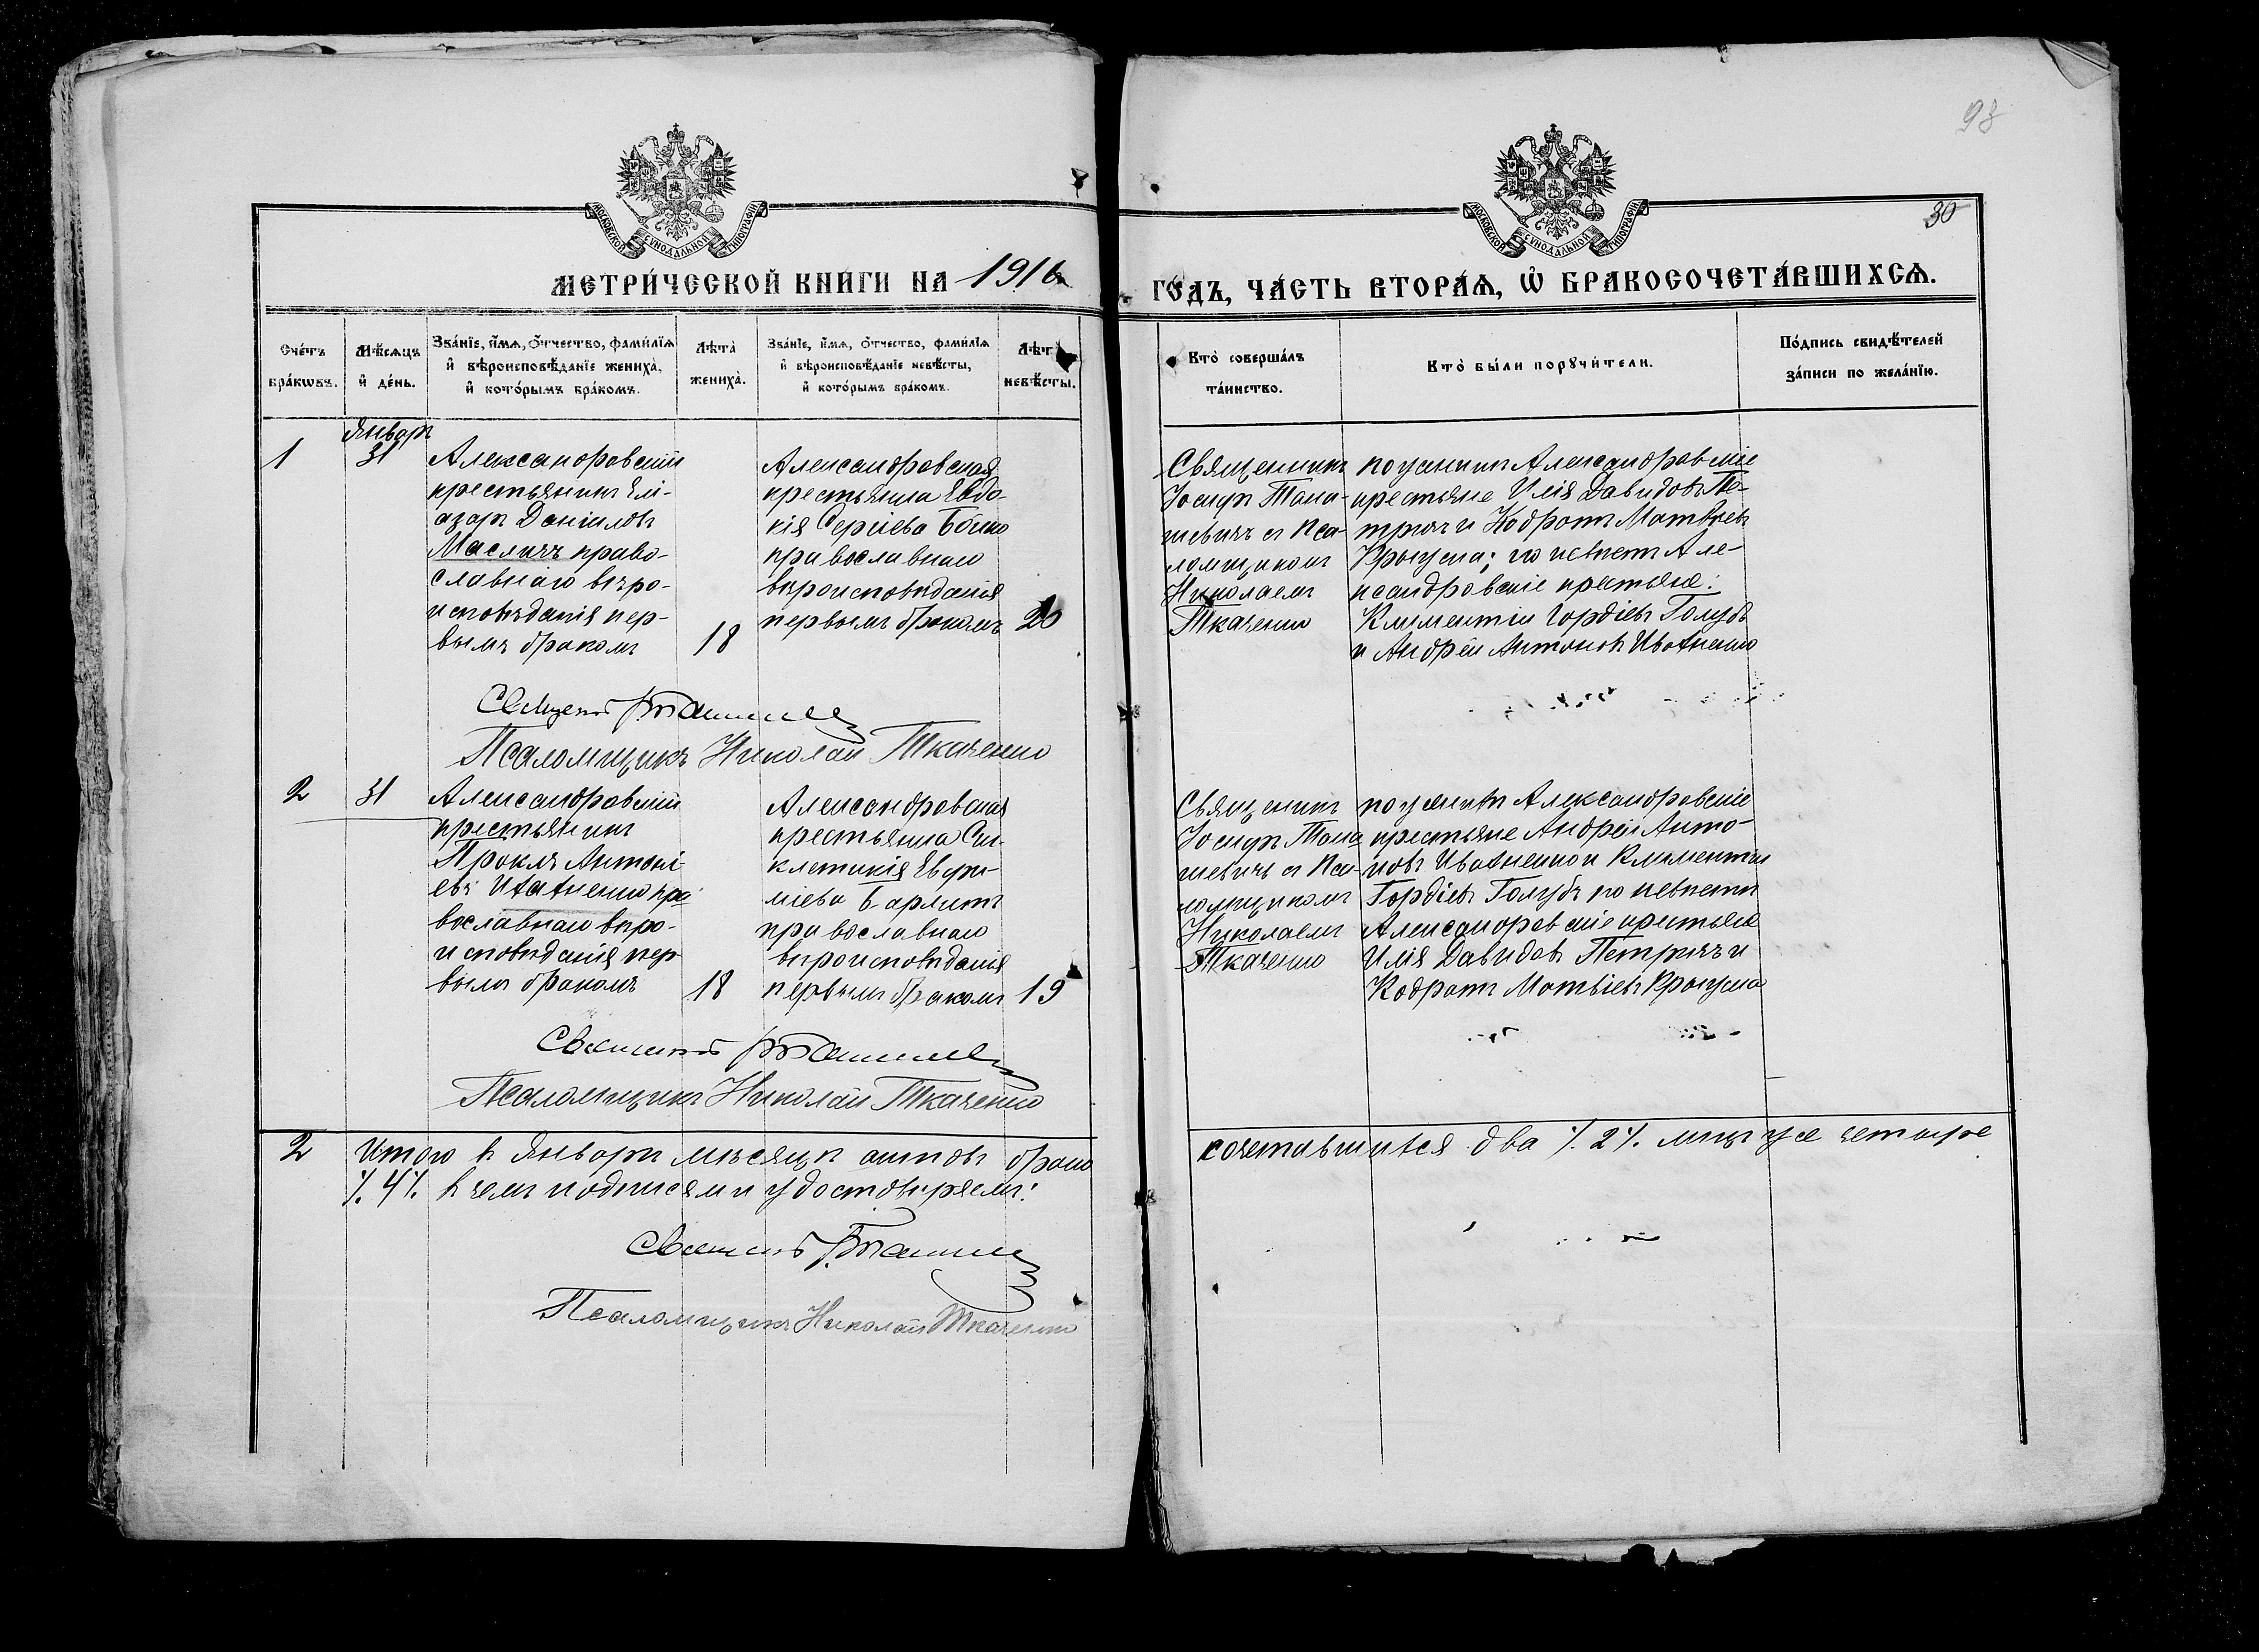 98
30
МОСКОВСКОЙ СѴНОДАЛЬНОЙ ТИПОГРАФІИ
МОСКОВСКОЙ СѴНОДАЛЬНОЙ ТИПОГРАФІИ
МЕТРИ́ЧЕСКОЙ КНИ́ГИ НА 1916 ГО́ДЪ, ЧА́СТЬ ВТОРА́Ѧ, Ѡ҆ БРАКОСОЧЕТА́ВШИХСѦ.
Сче́тъ бра́кѡвъ.
Мѣ́сѧцъ и҆ де́нь.
Зва́нїе, и҆́мѧ, о҆́тчество, фами́лїѧ и҆ вѣроисповѣ́данїе жениха̀, и҆ кото́рымъ бра́комъ.
Лѣта̀ жениха̀.
Зва́нїе, и҆́мѧ, о҆́тчество, фами́лїѧ и҆ вѣроисповѣ́данїе невѣ́сты, и҆ кото́рымъ бра́комъ.
Лѣта̀ невѣ́сты.
Кто̀ соверша́лъ та́инство.
Кто̀ бы́ли порꙋчи́тели.
По́дпись свидѣ́телей за́писи по жела́нїю.
1
Январь
31
Александровскій
крестьянинъ Елі-
азаръ Даніиловъ
Маслячъ право-
славнаго вѣро-
исповѣданія пер-
вымъ бракомъ
18
Александровская
крестьянка Евдо-
кія Сергіева
православнаго
вѣроисповѣданія
первымъ бракомъ
20
Священникъ
Іосифъ Тана-
шевичъ съ Пса-
ломщикомъ
Николаемъ
Ткаченко
по женихѣ Александровскіе
крестьяне Илія Давидовъ Пе-
тричъ и Кодратъ Матвѣевъ
по невѣстѣ Але-
ксандровскіе крестьяне:
Климентій Гордіевъ Голубъ
и Андрей Антоновъ Ивахненко
Псаломщикъ Николай Ткаченко
2
31
Александровскій
крестьянинъ
Проклъ Антоні-
евъ Ивахненко пра-
вославнаго вѣро-
исповѣданія пер-
вымъ бракомъ
18
Александровская
крестьянка Син-
клетикія Евфи-
міева
православнаго
вѣроисповѣданія
первымъ бракомъ
19
Священникъ
Іосифъ Тана-
шевичъ съ Пса-
ломщикомъ
Николаемъ
Ткаченко
по женихѣ Александровскіе
крестьяне Андрей Анто-
новъ Ивахненко и Климентій
Гордіевъ Голубъ по невѣстѣ
Александровскіе крестьяне
Илія Давидовъ Петричъ и
Кодратъ Матвіевъ
Псаломщикъ Николай Ткаченко
2
Итого в Январѣ мѣсяцѣ актовъ брако
сочетавшихся два ٪ 2 ٪.
٪ 4 ٪. в чемъ подписями удостовѣряемъ:
Псаломщикъ Николай Ткаченко